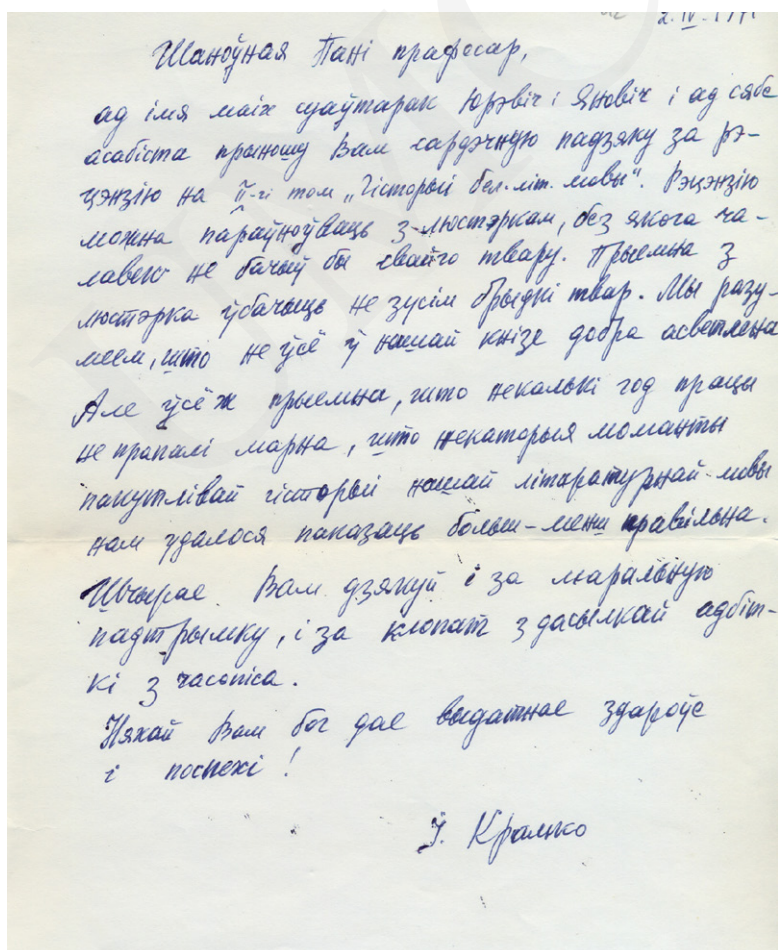 2.IV.197
Шаноўная Пані прафесар,
ад імя маіх суаўтарак Юрэвіч і Яновіч і ад сябе
асабіста прыношу Вам сардэчную падзяку за рэ-
цэнзію на ІІ-гі том „Гісторыі бел. літ. мовы". Рэцэнзію
можна параўноўваць з люстэркам, без якога ча-
лавек не бачыў бы свайго твару. Прыемна з
люстэрка ўбачыць не зусім брыдкі твар. Мы разу-
меем, што не ўсё ў нашай кнізе добра асветлена
Але ўсё ж прыемна, што некалькі год працы
не прапалі марна, што некаторыя моманты
пакутлівай гісторыі нашай літаратурнай мовы
нам удалося паказаць больш-менш правільна.
Шчырае Вам дзякуй і за маральную
падтрымку, і за клопат з дасылкай адбіт-
кі з часопіса.
Няхай Вам бог дае выдатнае здароўе
і поспехі!
І. Крамко